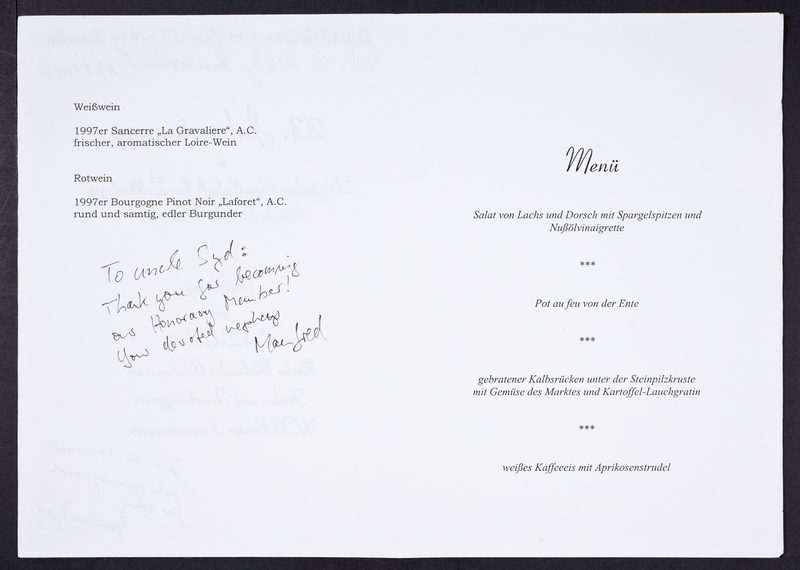 Weißwein
1997er Sancerre „La Gravaliere“, A.C.
frischer, aromatischer Loire-Wein
Rotwein
1997er Bourgogne Pinot Noir „Laforet“, A.C.
rund und samtig, edler Burgunder
To uncle Syd:
Thank you for becoming
our Honorary Member!
Your devoted nephew
Manfred
Menü
Salat von Lachs und Dorsch mit Spargelspitzen und
Nußölvinaigrette
***
Pot au feu von der Ente
***
gebratener Kalbsrücken unter der Steinpilzkruste
mit Gemüse des Marktes und Kartoffel-Lauchgratin
***
weißes Kaffeeeis mit Aprikosenstrudel